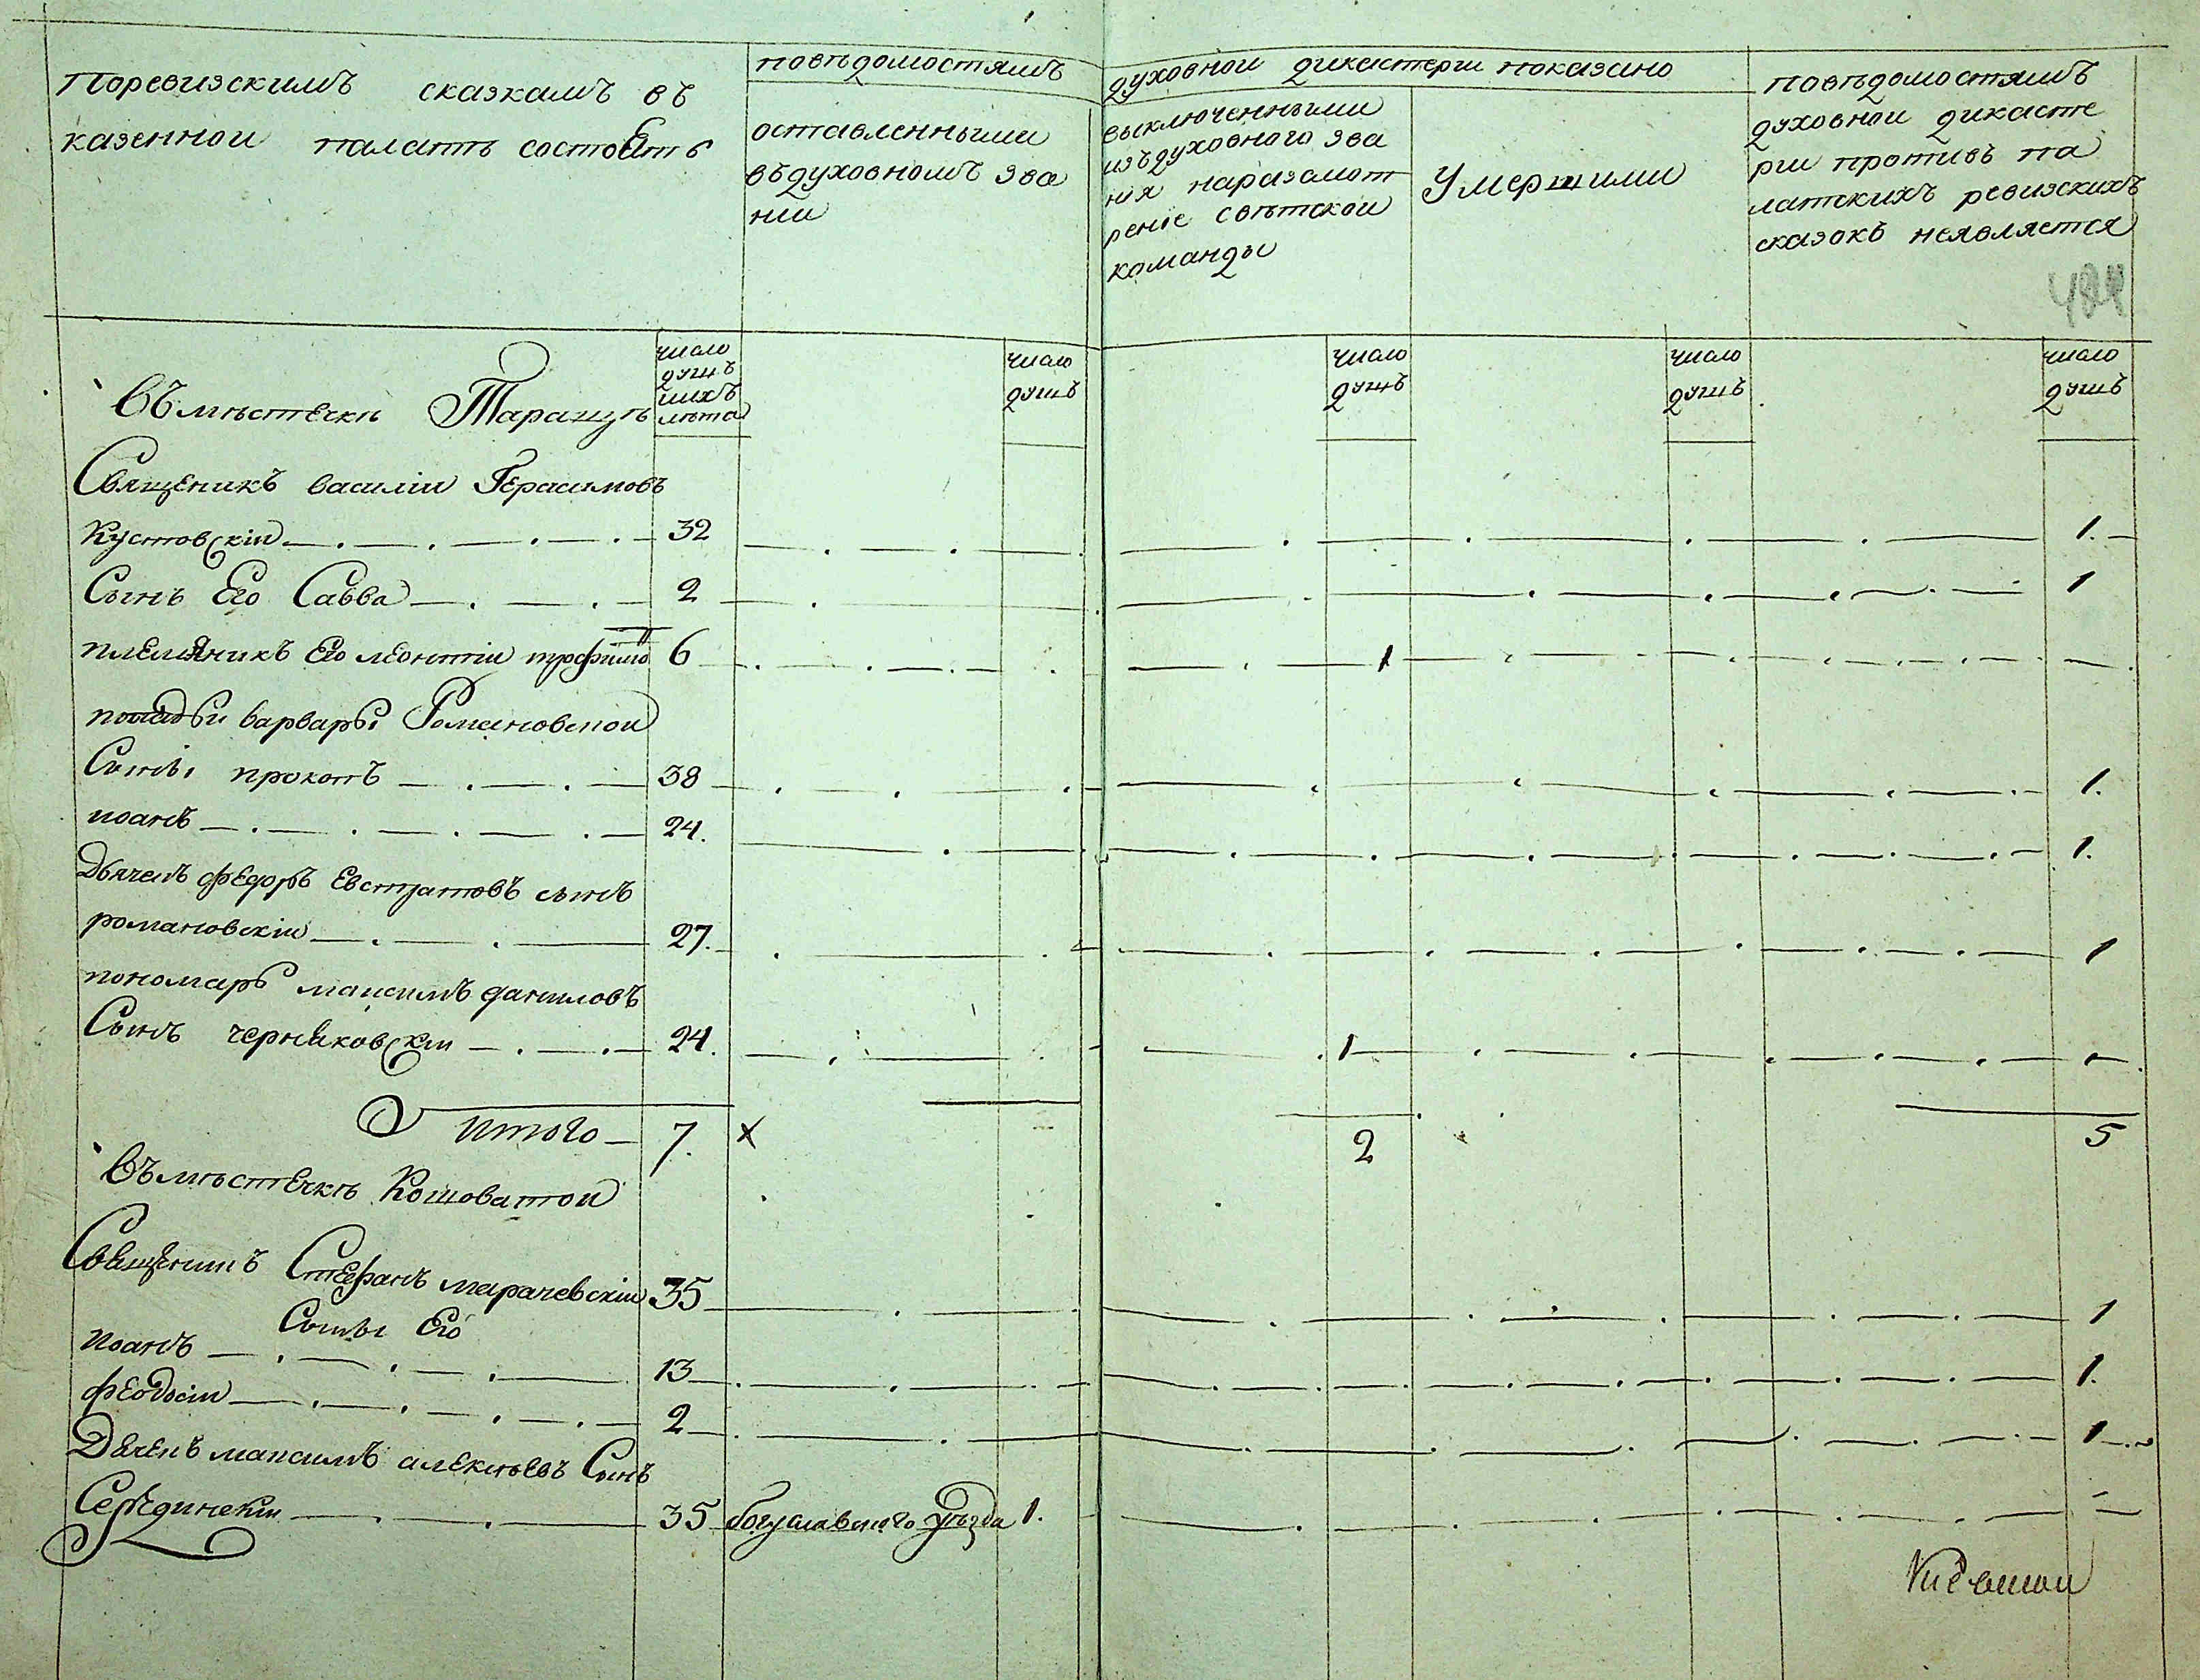 Поревизскимъ сказкамъ въ
казенной палатѣ состоятъ
повѣдомостямъ
оставленными
въдуховномъ зва
нии
духовной дикастерии показано
выключенными
изъдуховного зва
ния наразсмот
рение свѣтской
команды
Умершими
повѣдомостямъ
духовной дикасте
рии противъ па
латскихъ ревизскихъ
сказокъ неявляется
число
душъ
ихъ
лѣта
число
душъ
число
душъ
число
душъ
число
душъ
Въмѣстечкѣ Таращѣ
Священикъ василій Герасимовъ
Кустовскій 32 1.
Сынъ Его Савва 2 1
племяникъ Его леонтій трофимо 6 1
попадьи варвары Романовской
Сыны прокопъ 38 1.
иоанъ 24. 1.
Дьячекъ федоръ Евстратовъ сынъ
романовскій 27. 1
пономарь максимъ даниловъ
Сынъ черняковскій 24. 1
Итого 7. x 2 5
Въмѣстечкѣ Кошоватой
Священикъ Стефанъ марачевскій 35 1
Сыны Его
иоанъ 13 1.
феодосій 2 1
Дячекъ максимъ алексѣевъ Сынъ
Серединскій 35 богуславского уѣзда 1.